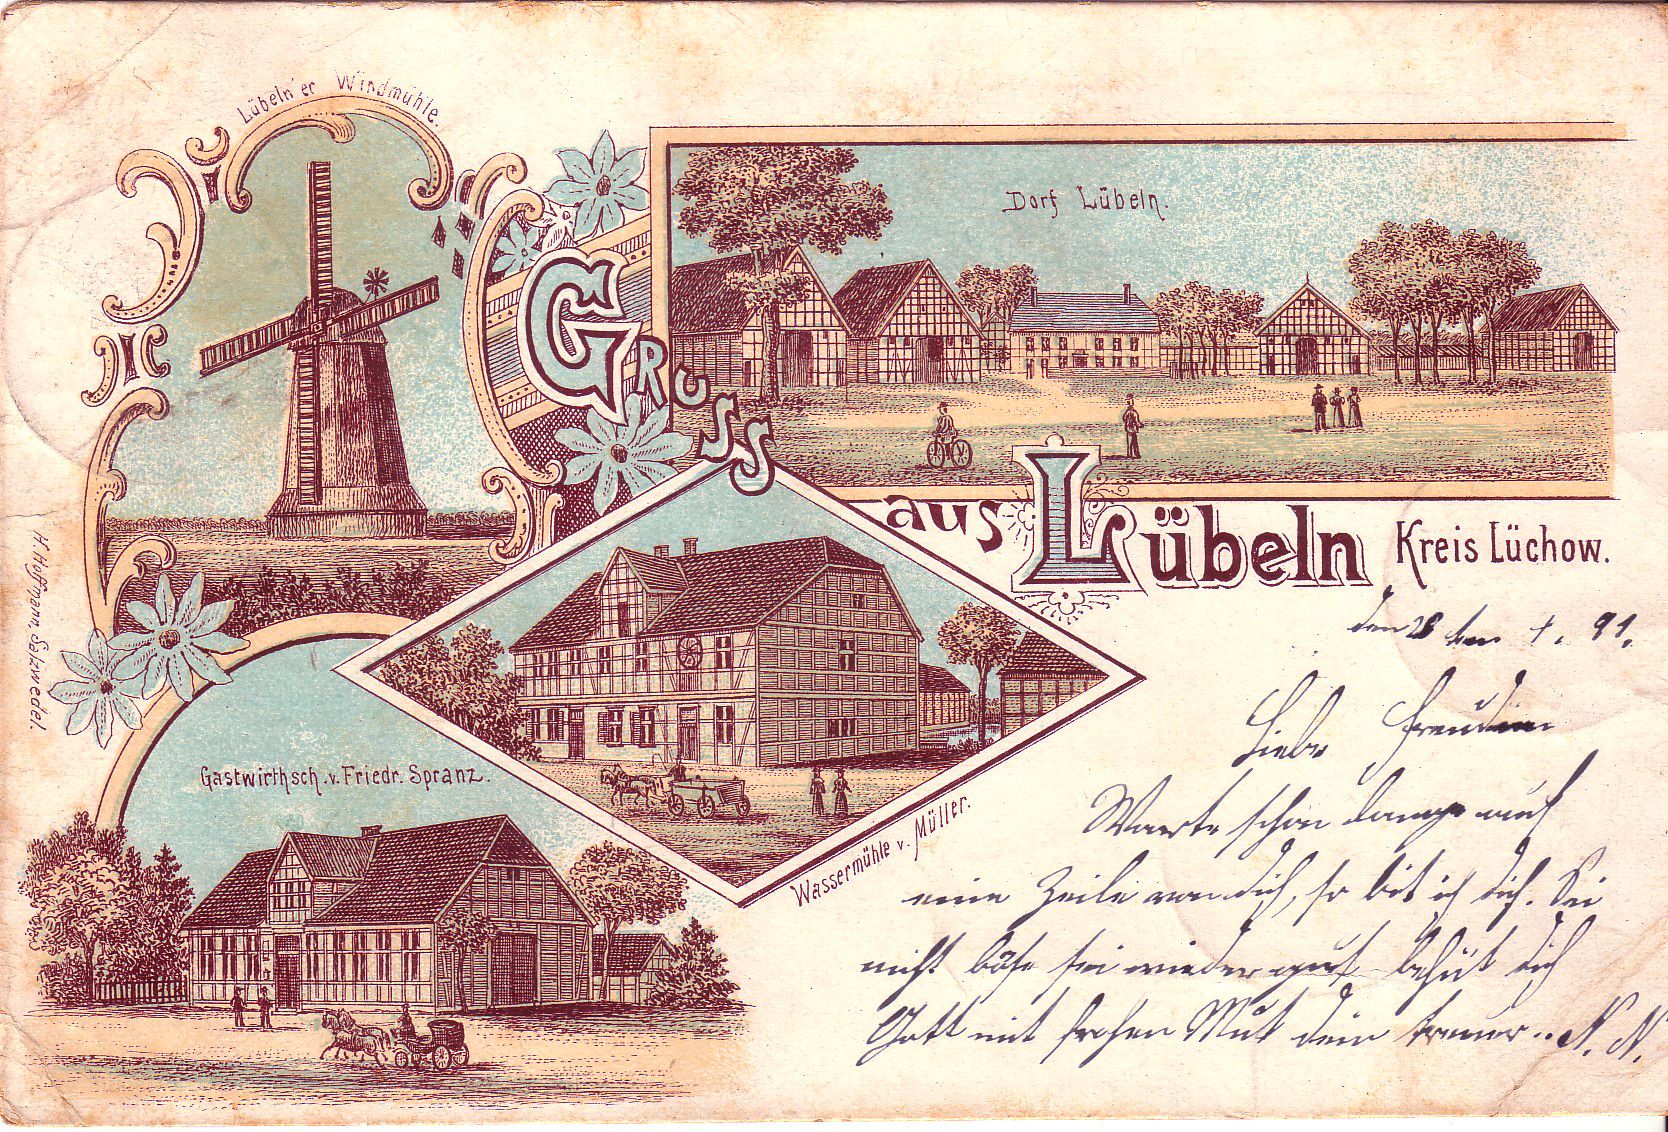 Lübeln'er Windmühle.
Dorf Lübeln.
Gruss
aus Lübeln Kreis Lüchow.
Gastwirthsch. v. Friedr. Spranz.
Wassermühle v. Müller.
H. Hoffmann, Salzwedel.
den 1. 91.
Liebe Freundin
Warte schon lange auf
eine Zeile von dich, so bit ich dich. Sei
nicht böse sei wieder gut behüt dich
Gott mit frohen Mut dein treuer .. N. N.